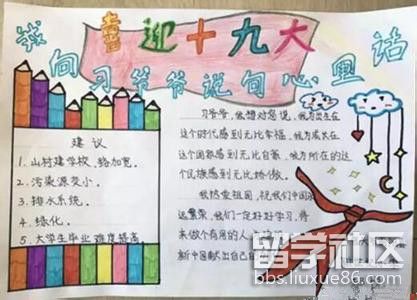 喜迎十九大
我向习爷爷说句心里话
建议
1.山村建学校,路加宽。
2.污染源变小。
3.排水系统。
4.绿化。
5.大学生毕业难度提高。
习爷爷,我想对您说,我为出生在
这个时代感到无比幸福,我为成长在
这个国家感到无比自豪,我为所在的
这个民族感到无比骄傲。
我热爱祖国,祝我们中国永
远繁荣,我们一定好好学习,将
来做个有用的人
新中国献出自己
留学社区
bbs.liuxue86.com